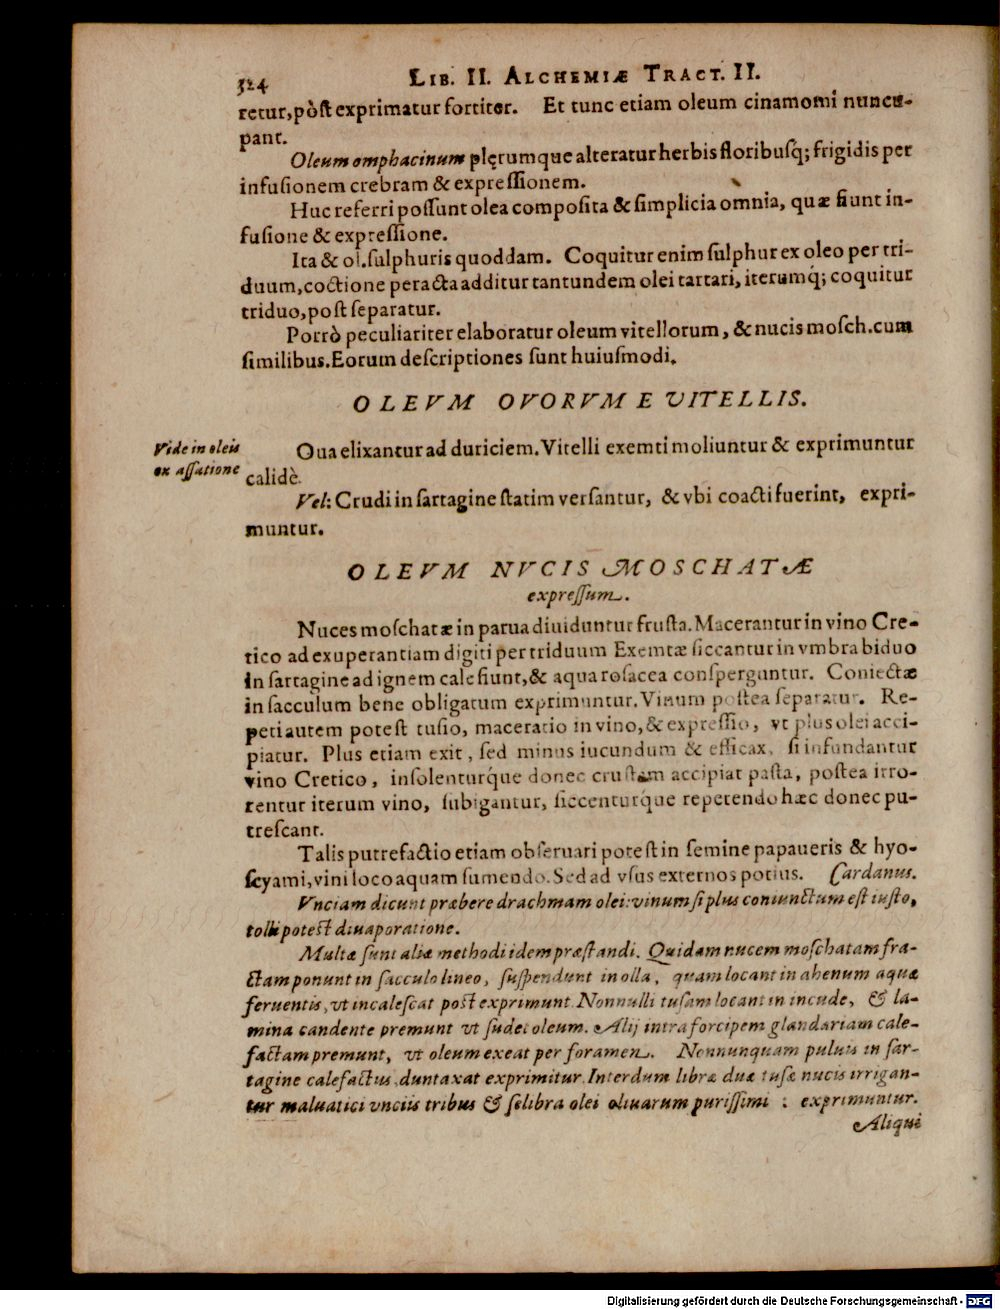 324 LIB. II. ALCHEMIÆ TRACT. II.
retur, pòſt exprimatur fortiter. Et tunc etiam oleum cinamomi nuncu-
pant.
Oleum omphacinum plęrumque alteratur herbis floribuſq; frigidis per
infuſionem crebram & expreſſionem.
Huc referri poſſunt olea compoſita & ſimplicia omnia, quæ fiunt in-
fuſione & expreſſione.
Ita & ol. ſulphuris quoddam. Coquitur enim ſulphur ex oleo per tri-
duum, coctione peracta additur tantundem olei tartari, iterumq́; coquitur
triduo, poſt ſeparatur.
Porrò peculiariter elaboratur oleum vitellorum, & nucis moſch. cum
ſimilibus. Eorum deſcriptiones ſunt huiuſmodi.
OLEVM OVORVM E VITELLIS.
Vide in oleis
ex aſſatione
Oua elixantur ad duriciem. Vitelli exemti moliuntur & exprimuntur
calidè.
Vel: Crudi in ſartagine ſtatim verſantur, & vbi coacti fuerint, expri-
muntur.
OLEVM NVCIS MOSCHATÆ
expreſſum.
Nuces moſchatæ in parua diuiduntur fruſta. Macerantur in vino Cre-
tico ad exuperantiam digiti per triduum Exemtæ ſiccantur in vmbra biduo
in ſartagine ad ignem calefiunt, & aqua roſacea conſperguntur. Coniectæ
in ſacculum bene obligatum exprimuntur. Vinum poſtea ſeparatur. Re-
peti autem poteſt tuſio, maceratio in vino, & expreſſio, vt plus olei acci-
piatur. Plus etiam exit, ſed minus iucundum & efficax, ſi infundantur
vino Cretico, inſolenturq́ue donec cruſtam accipiat paſta, poſtea irro-
rentur iterum vino, ſubigantur, ſiccenturq́ue repetendo hæc donec pu-
treſcant.
Talis putrefactio etiam obſeruari poteſt in ſemine papaueris & hyo-
ſcyami, vini loco aquam ſumendo. Sed ad vſus externos potius. Cardanus.
Vnciam dicunt præbere drachmam olei: vinum ſi plus coniunctum eſt iuſto,
tolli poteſt diuaporatione.
Multæ ſunt aliæ methodi idem præſtandi. Quidam nucem moſchatam fra-
ctam ponunt in ſacculo lineo, ſuſpendunt in olla, quam locant in ahenum aquæ
feruentis, vt incaleſcat poſt exprimunt. Nonnulli tuſam locant in incude, & la-
mina candente premunt vt ſudet oleum. Alij intra forcipem glandariam cale-
factam premunt, vt oleum exeat per foramen. Nonnunquam puluis in ſar-
tagine calefactus, duntaxat exprimitur. Interdum libræ duæ tuſæ nucis irrigan-
tur maluatici vnciis tribus & ſelibra olei oliuarum puriſſimi: exprimuntur.
Aliqui
Digitalisierung gefördert durch die Deutsche Forschungsgemeinschaft - DFG